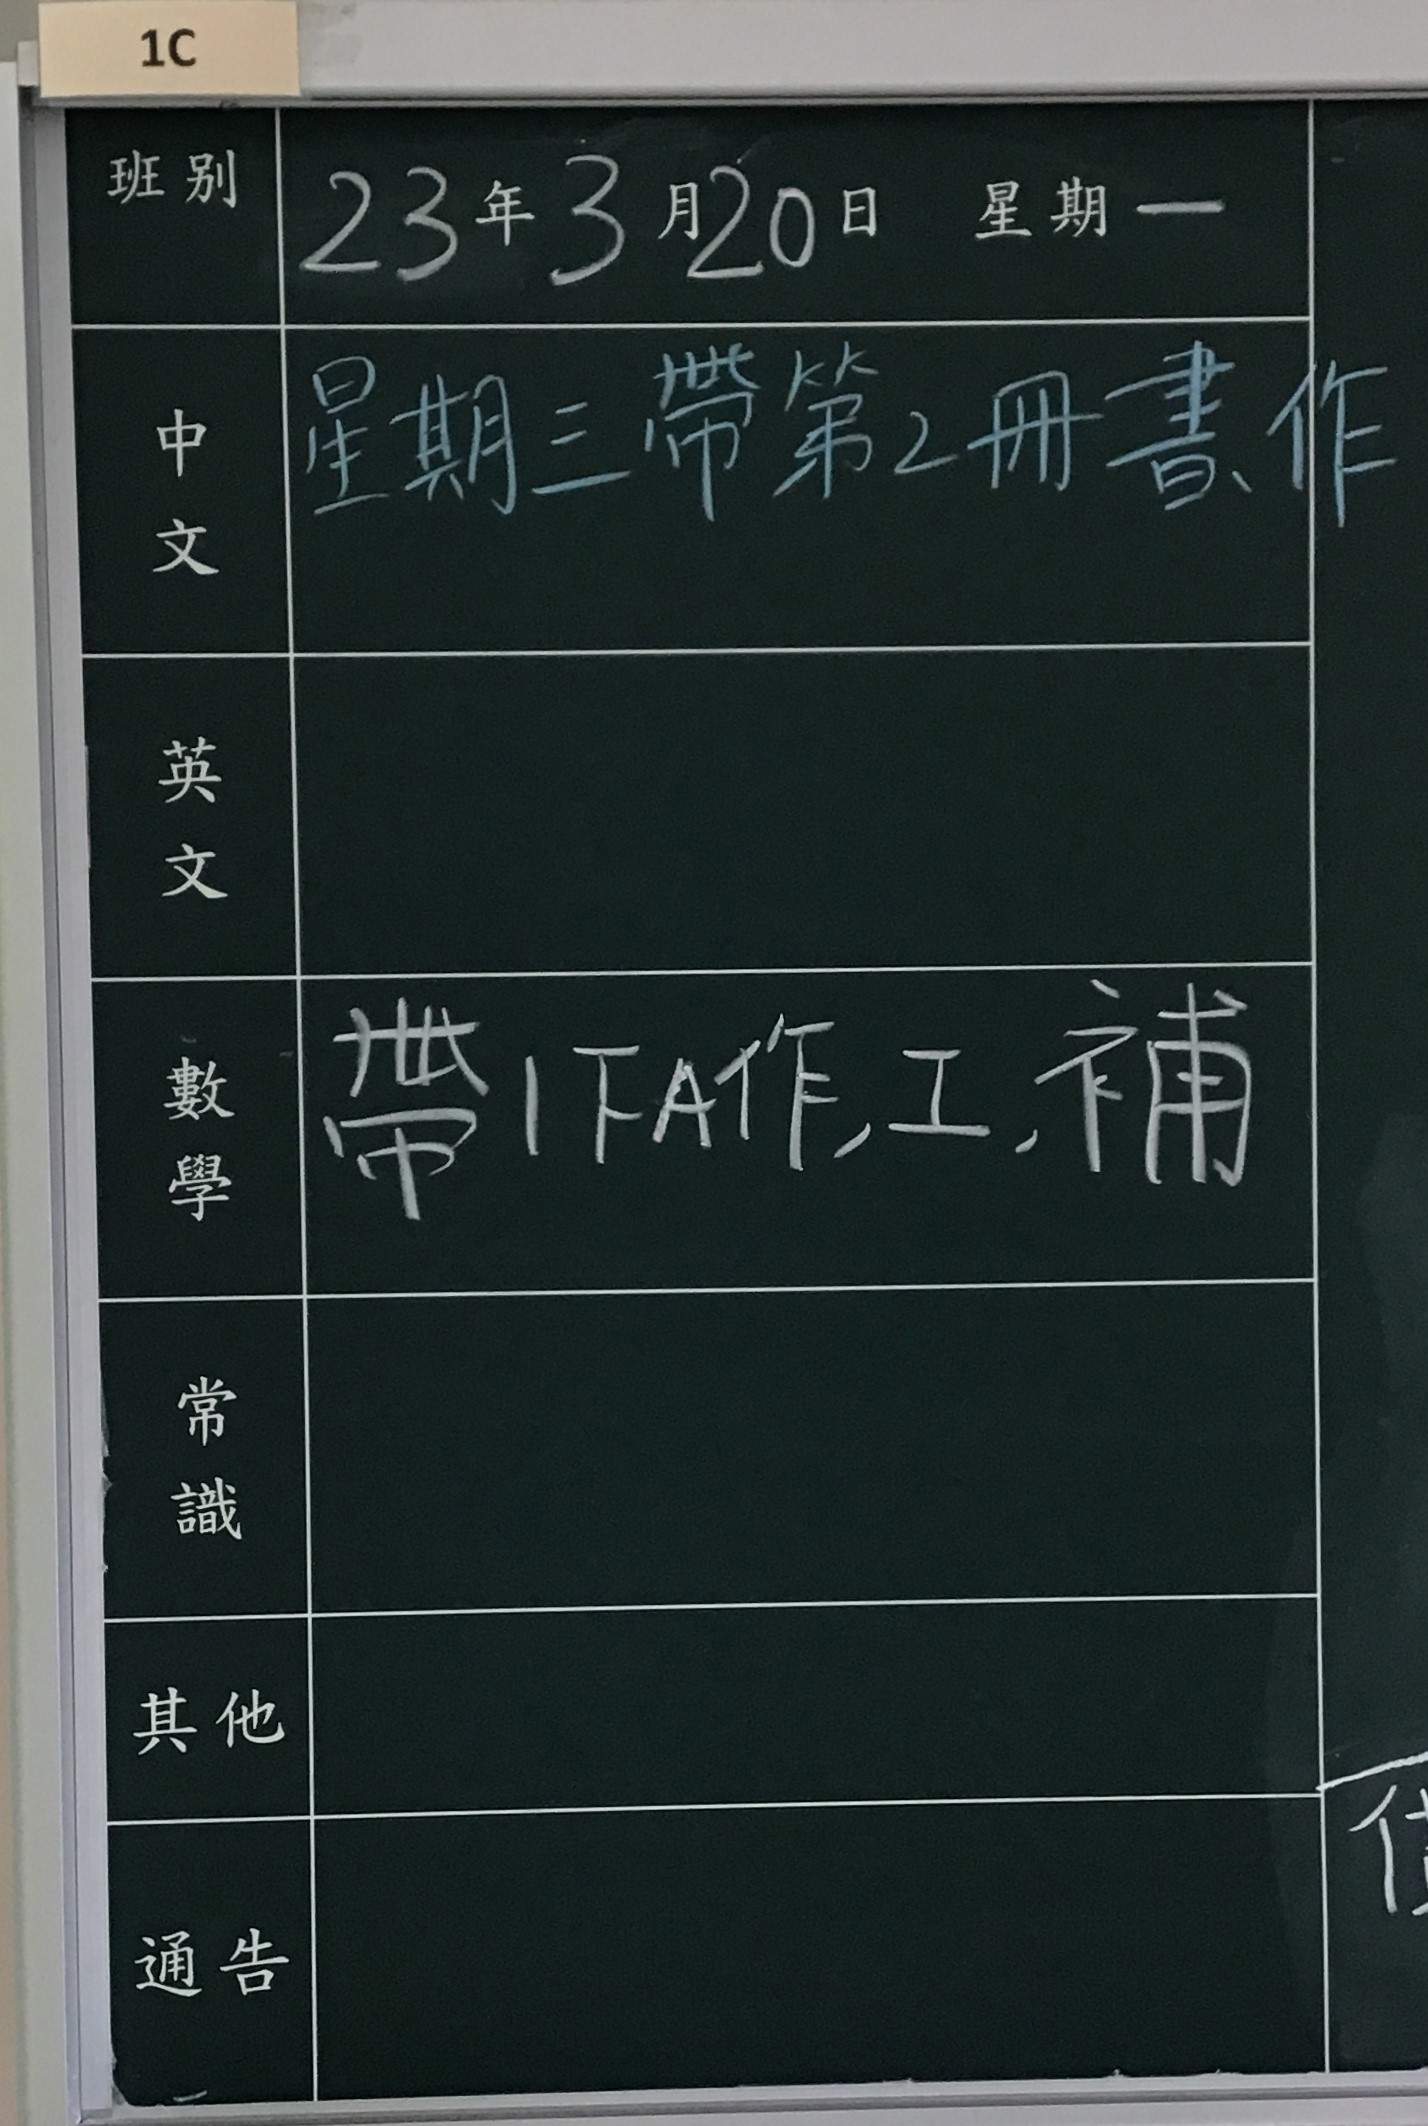 1C
班別
23年3月20日 星期一
中文
星期三帶第2冊書、作
英文
數學
帶1下A作,工,補
常識
其他
通告